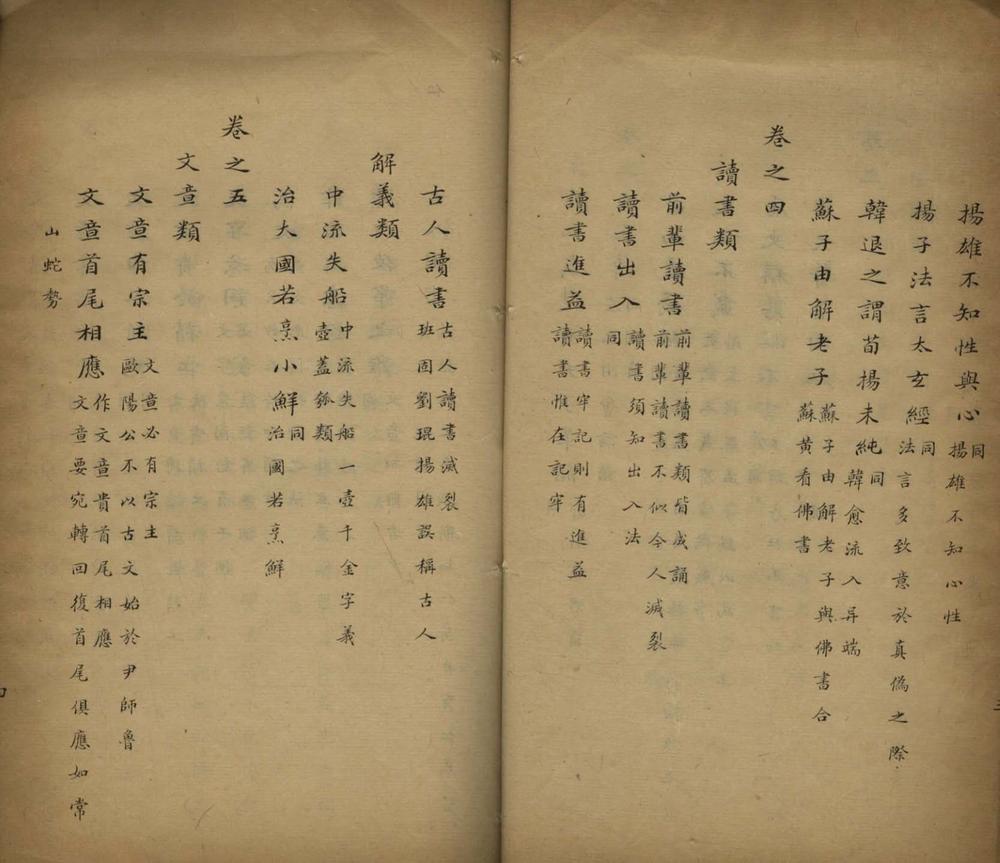 揚雄不知性與心同揚雄不知心性
揚子法言太玄經同法言多致意於真僞之際
韓退之謂荀揚未純同韓愈流入异端
蘇子由解老子蘇子由解老子與佛書合蘇黃看佛書
卷之四
讀書類
前輩讀書前輩讀書類皆成誦前輩讀書不似今人滅裂
讀書出入讀書須知出入法同
讀書進益讀書牢記則有進益讀書惟在記牢
古人讀書古人讀書滅裂班固劉琨揚雄誤稱古人
解義類
中流失船中流失船一壺千金字義壺蓋瓠類
治大國若烹小鮮同治國若烹鮮
卷之五
文章類
文章有宗主文章必有宗主歐陽公不以古文始於尹師魯
文章首尾相應作文章貴首尾相應文章要宛轉回復首尾俱應如常
山蛇勢